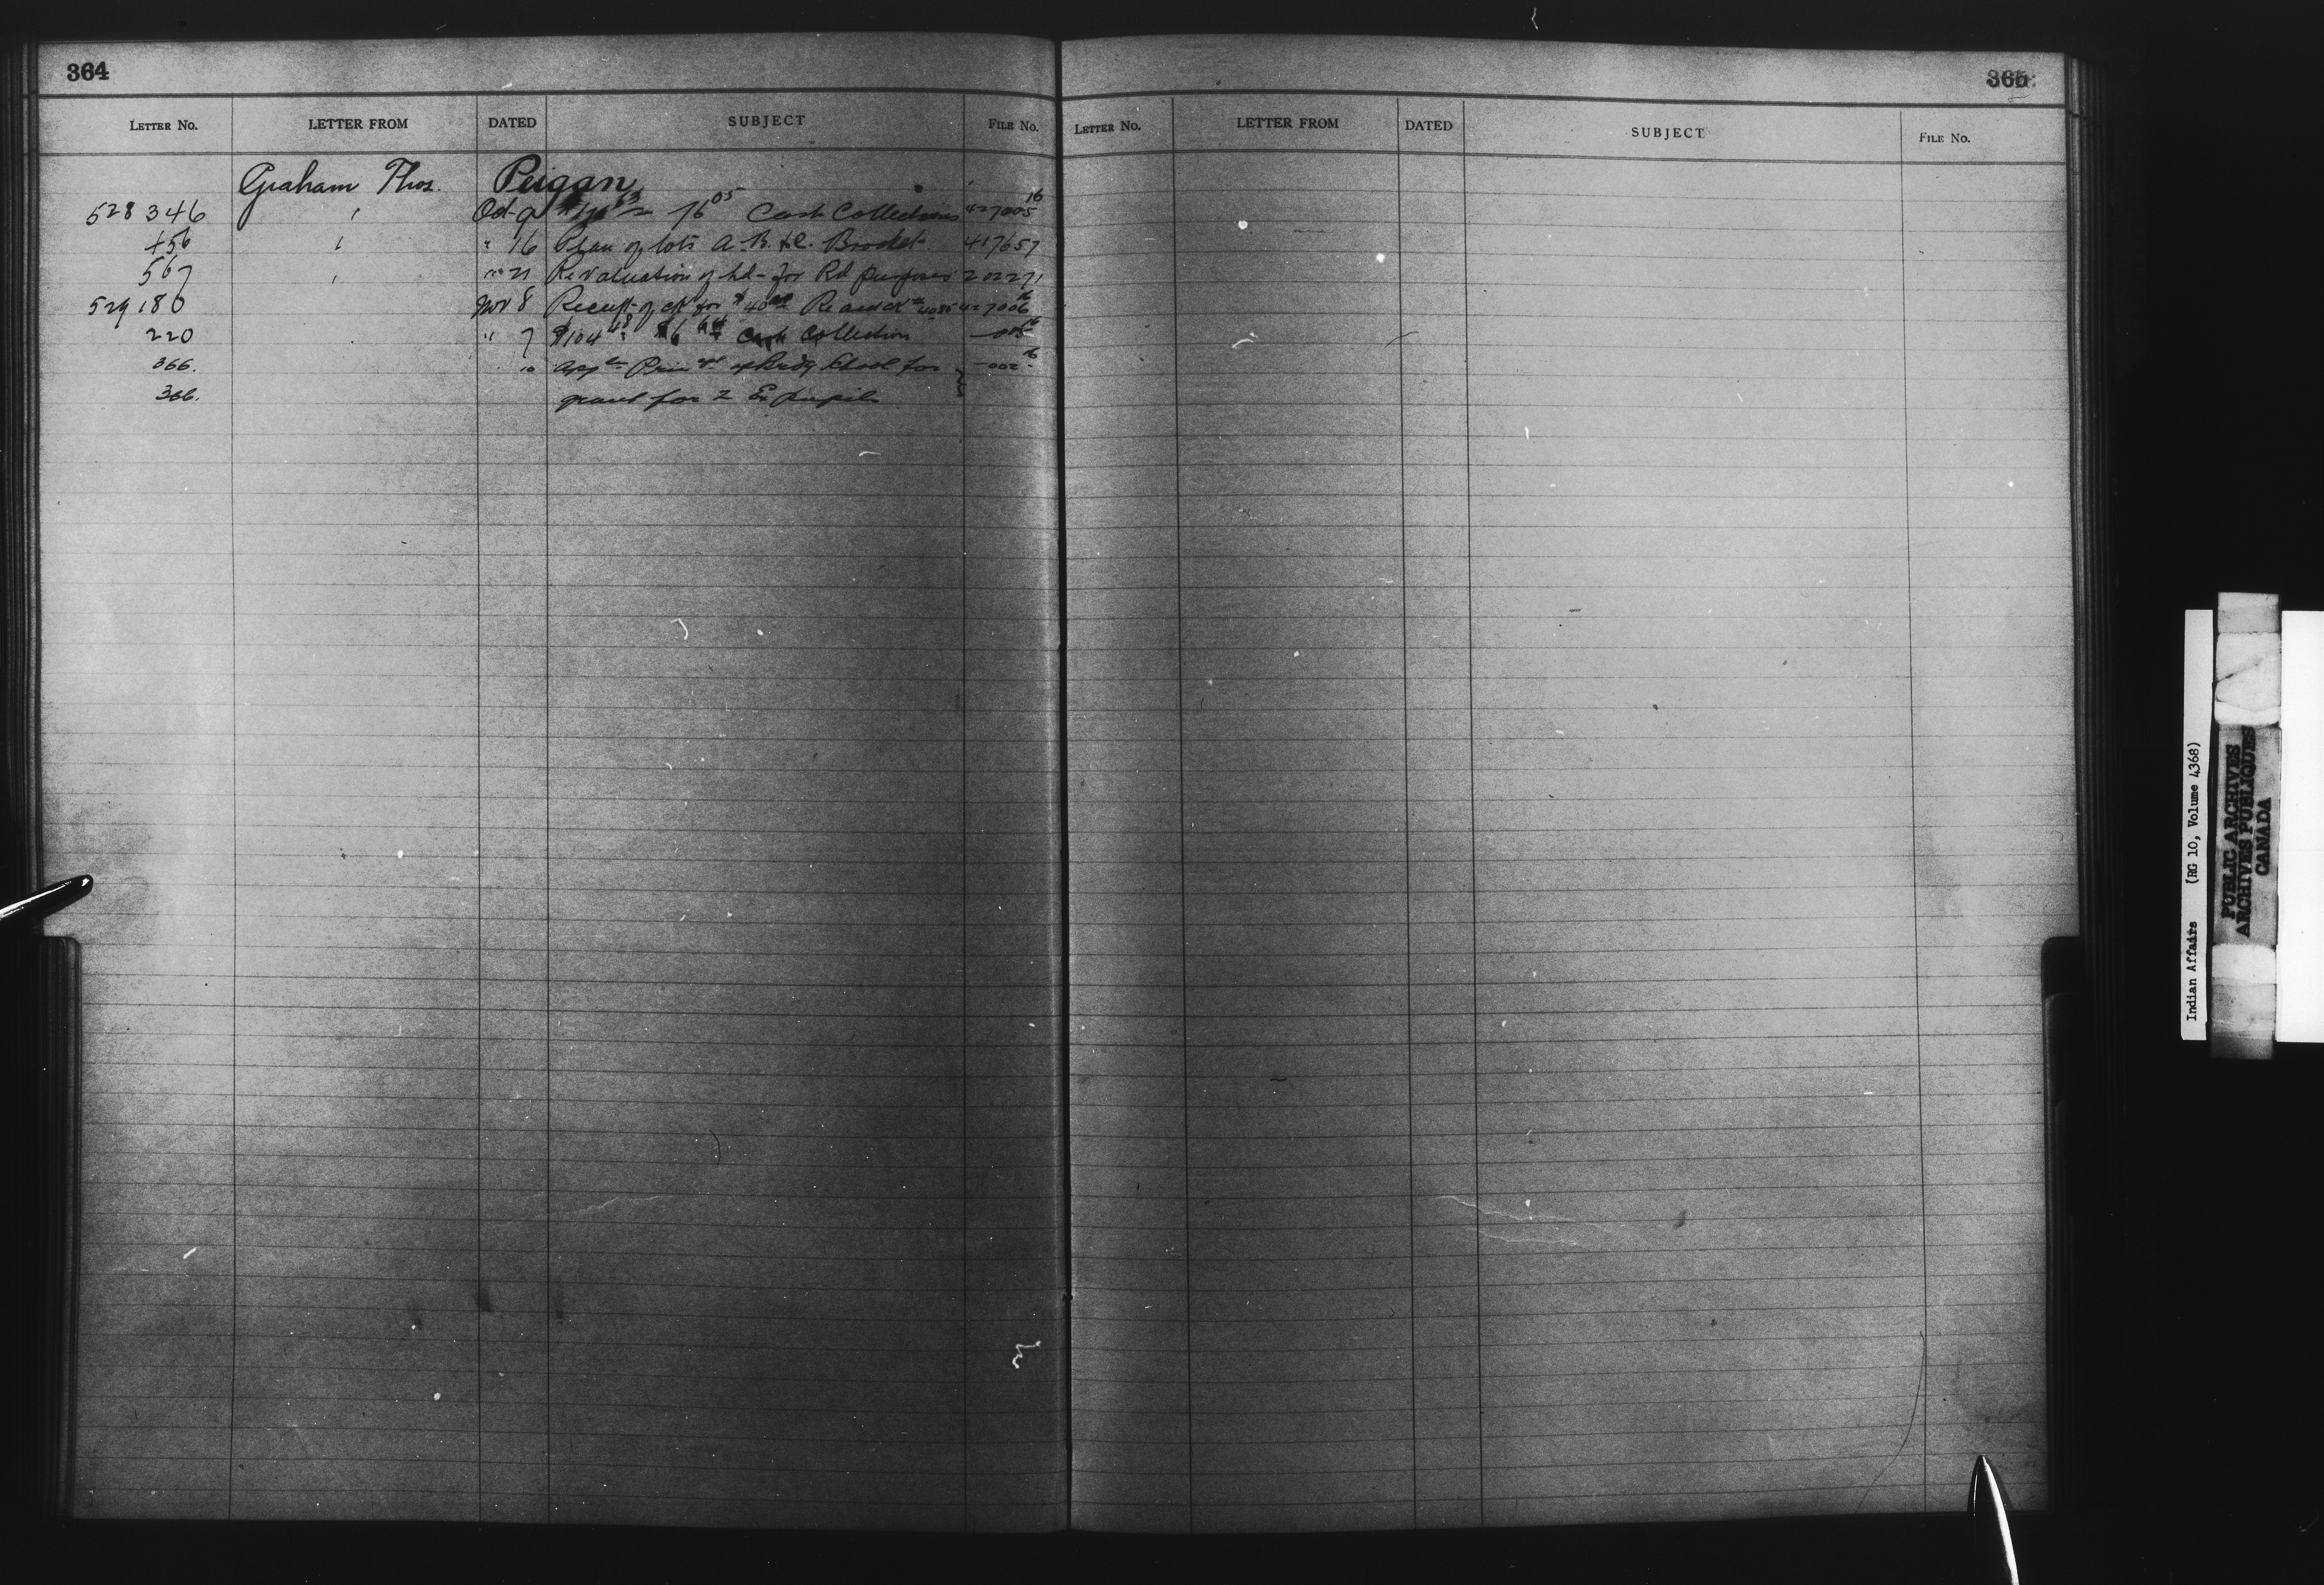 364
LETTER NO. LETTER FROM DATED SUBJECT FILE No.
Graham Thos. Peigan
528346 " Oct 9 76 05 Cash Collections 427005 16
456 " " 16 Plan of lots A. B. & C. Brocket 417657
567 " " 21 Re valuation of Ld- for Rd purposes 202271
529180 Nov 8 Receipt of ck for $40 00 Re 427006 16
220 " 7 $104 48 $6 64 Cash Collection — 005 16
366. 10 appln Prin School for — 002 16
366. grant for 2 Ex pupils
365
LETTER No. LETTER FROM DATED SUBJECT FILE No.
Indian Affairs (RG 10, Volume 4368)
PUBLIC ARCHIVES
ARCHIVES PUBLIQUES
CANADA